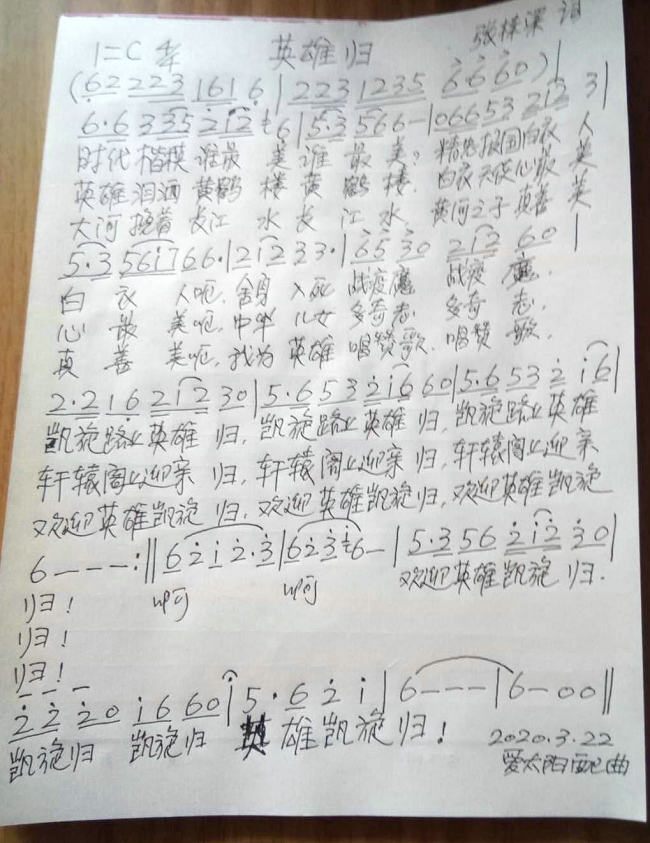 1=C 4/4 英雄归 张栋梁 词
(62 223 161 6 | 223 1235 6 6 60) |
6·6 335 212 16 | 5·3 56 6- | 06653 212 3 |
时代楷模谁最美谁最美? 精忠报国白衣人
英雄泪洒黄鹤楼黄鹤楼. 白衣天使心最美
大河挽着长江水长江水. 黄河之子真善美
5·3 5617 66· | 212 33· | 65 30 212 60 |
白衣人呃, 舍身入死战疫魔 战疫魔.
心最美呃, 中华儿女多奇志 多奇志.
真善美呃, 我为英雄唱赞歌. 唱赞歌.
2·2 16 212 30 | 5·6 53 216 60 | 5·6 53 2 16 |
凯旋路上英雄归, 凯旋路上英雄归, 凯旋路上英雄
轩辕阁上迎亲归, 轩辕阁上迎亲归, 轩辕阁上迎亲
欢迎英雄凯旋归. 欢迎英雄凯旋归, 欢迎英雄凯旋
6 - - - :‖ 6 2 1 2·3 | 6 2 3 16 - | 5·3 56 212 30 |
归! 呵 呵 欢迎英雄凯旋归.
归!
归!
2 2 20 16 60 1 | 5·6 2 1 | 6 - - - | 6 - 0 0 ‖
凯旋归 凯旋归 英雄凯旋归!
2020.3.22
爱太阳配曲